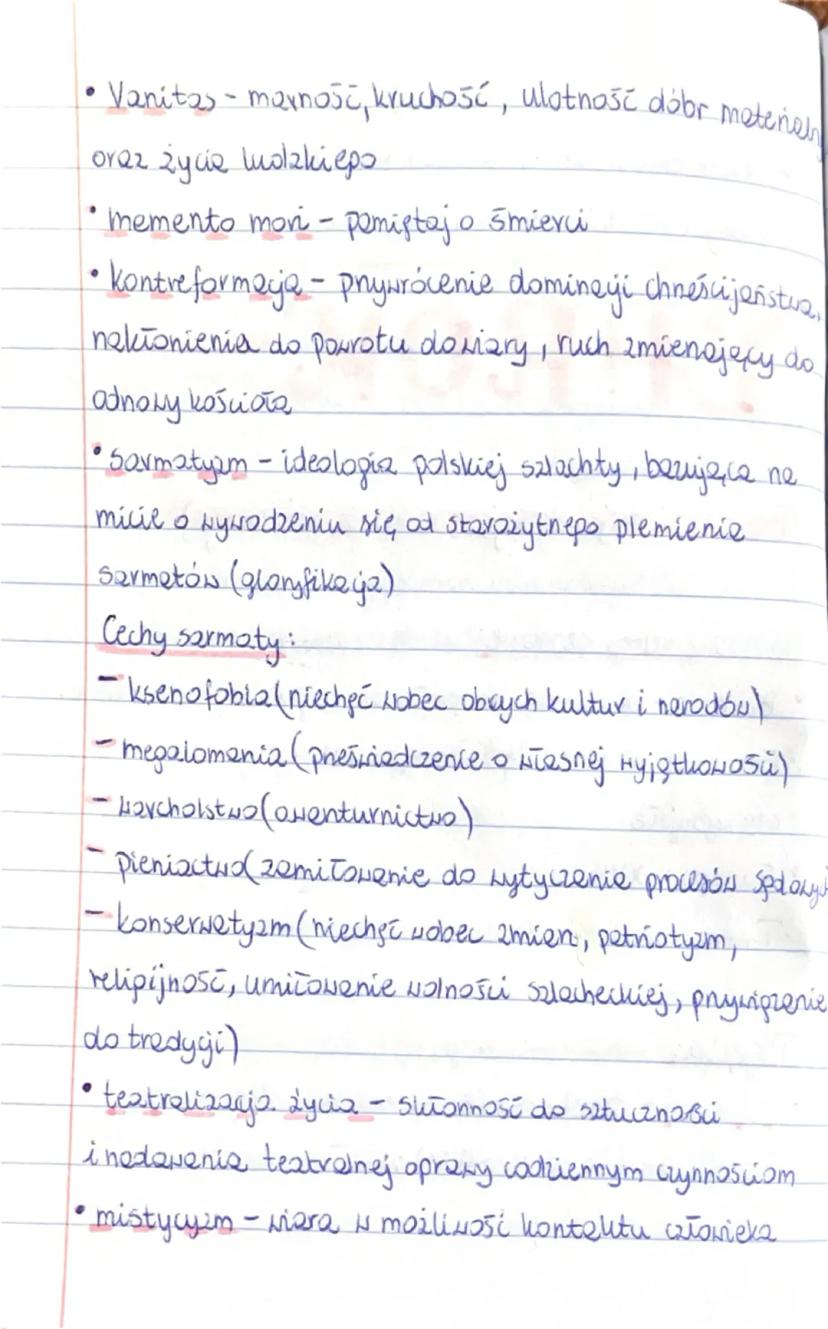 • Vanitas - marność, kruchość, ulotność dóbr materialny
oraz życia ludzkiego
• memento mori - pamiętaj o śmierci
• kontreformacja - przywrócenie dominacji chrześcijaństwa,
nakłonienia do powrotu do wiary, ruch zmierzający do
odnowy kościoła
• Sarmatyzm - ideologia polskiej szlachty, bazująca na
micie o wywodzeniu się od starożytnego plemienia
sarmatów (gloryfikacja)
Cechy sarmaty:
- ksenofobia (niechęć wobec obcych kultur i narodów)
- megalomania (przeświadczenie o własnej wyjątkowości)
- warcholstwo (awanturnictwo)
- pieniactwo (zamiłowanie do wytyczania procesów sądowych
- konserwatyzm (niechęć wobec zmian, patriotyzm,
religijność, umiłowanie wolności szlacheckiej, przywiązanie
do tradycji)
• teatralizacja życia - skłonność do sztuczności
i nadawania teatralnej oprawy codziennym czynnościom
• mistycyzm - wiara w możliwość kontaktu człowieka